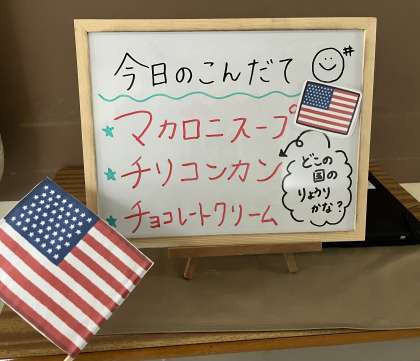 今日のこんだて
マカロニスープ
チリコンカン
チョコレートクリーム
どこの
国の
りょうり
かな?